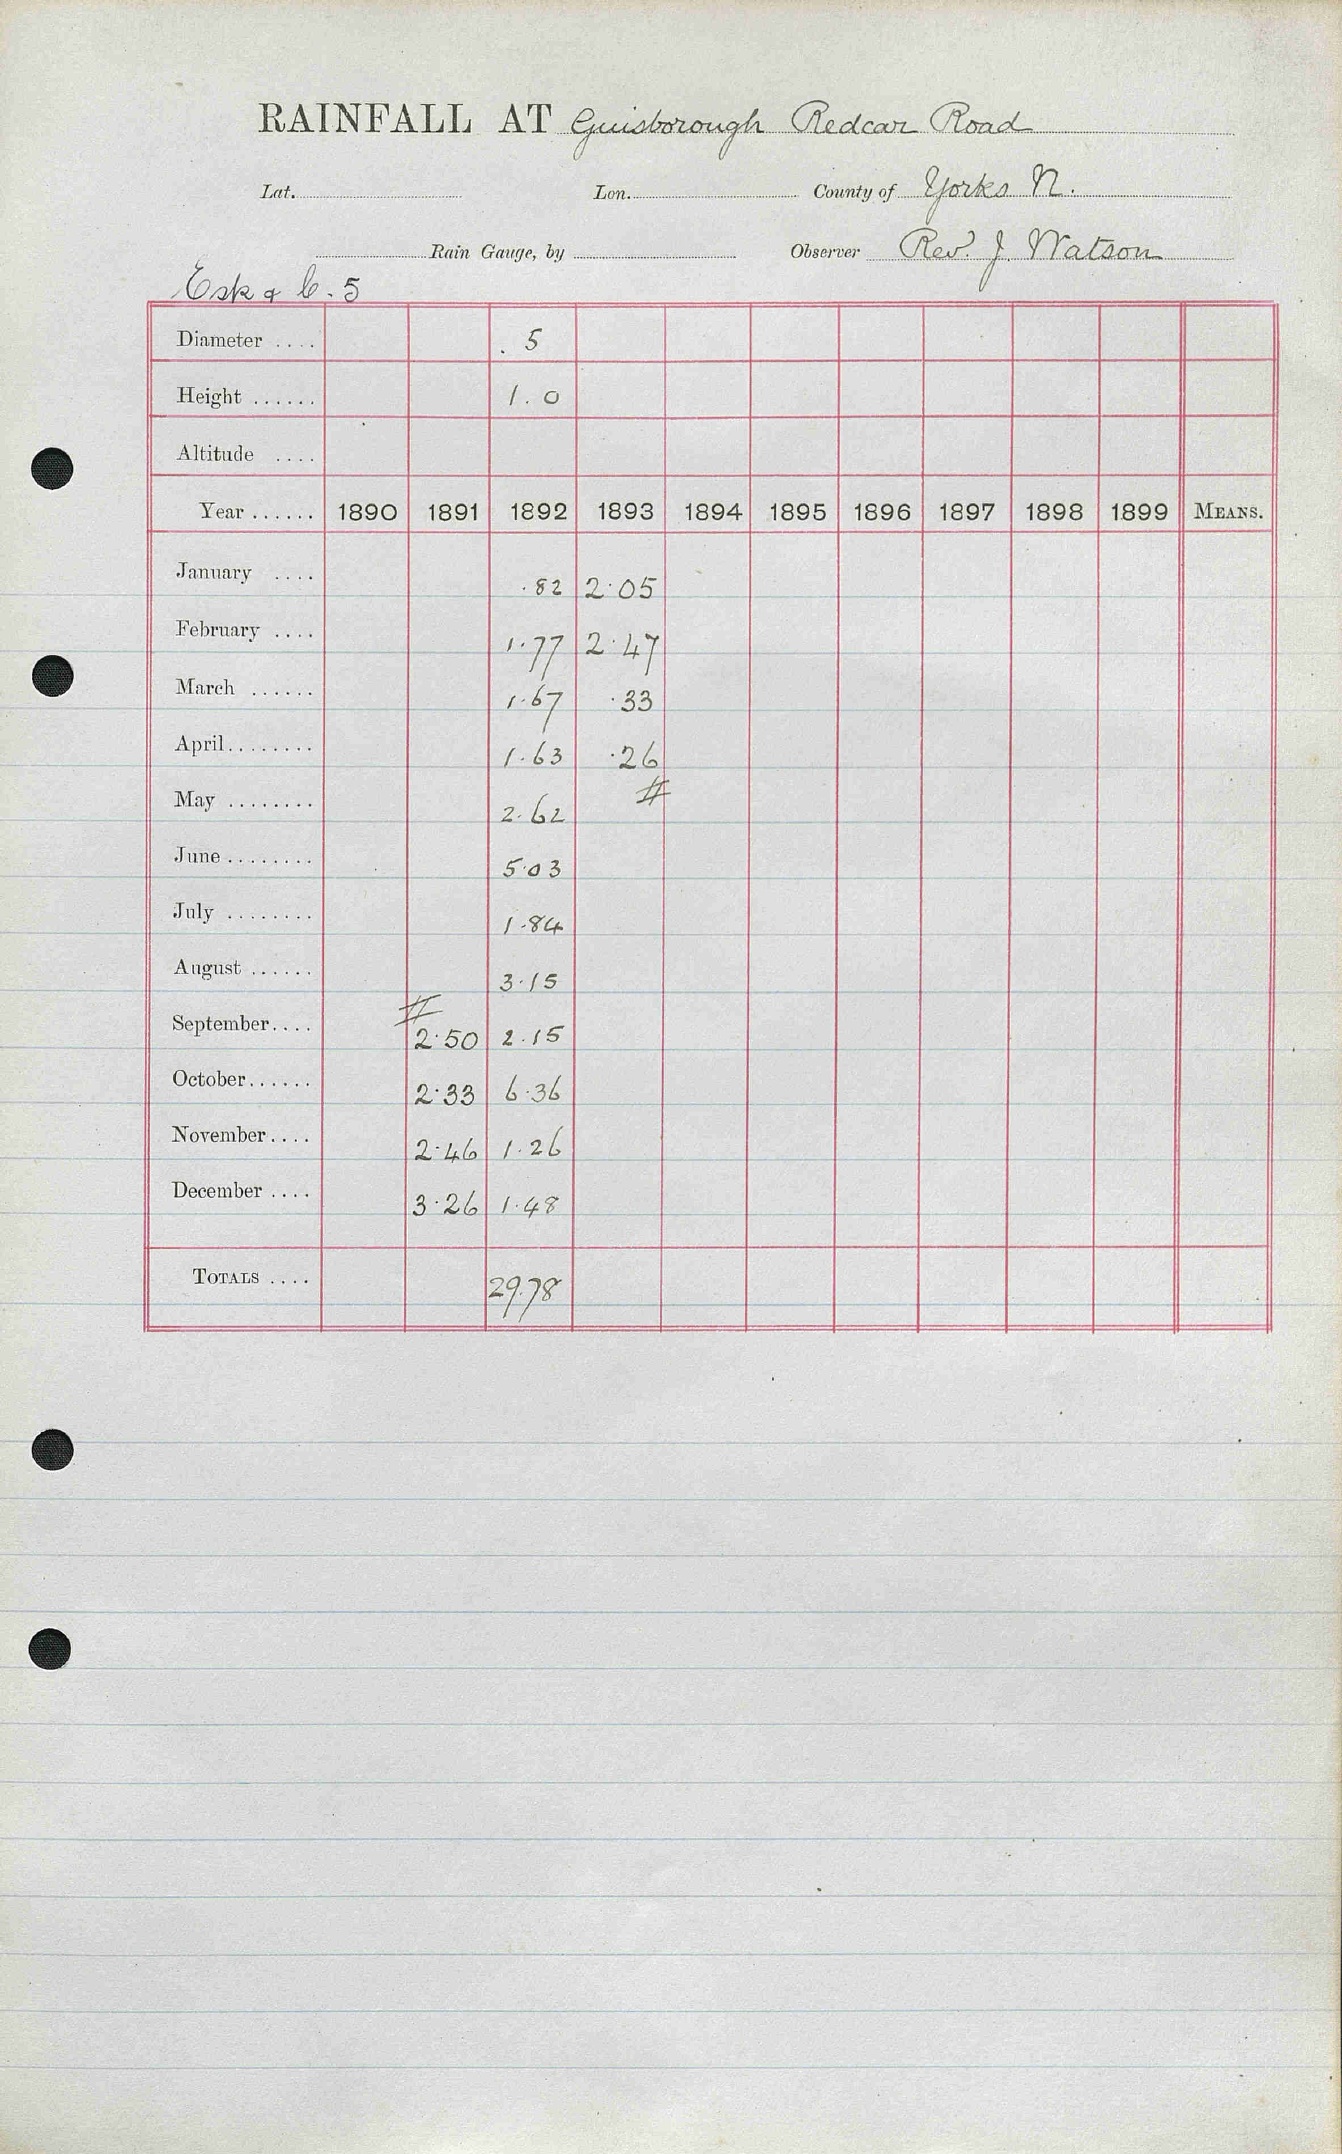 RAINFALL AT Guisborough Redcar Road
Lat. Lon. County of Yorks N.
Rain Gauge, by Observer Rev. J. Watson
Esk & C. 5
Diameter .... 5
Height ...... 1.0
Altitude ....
Year ...... 1890 1891 1892 1893 1894 1895 1896 1897 1898 1899 MEANS.
January .... .82 2.05
February .... 1.77 2.47
March ...... 1.67 .33
April ........ 1.63 .26
May ........ 2.62 #
June ........ 5.03
July ........ 1.84
August ...... 3.15
September .... # 2.50 2.15
October ...... 2.33 6.36
November .... 2.46 1.26
December .... 3.26 1.48
TOTALS .... 29.78